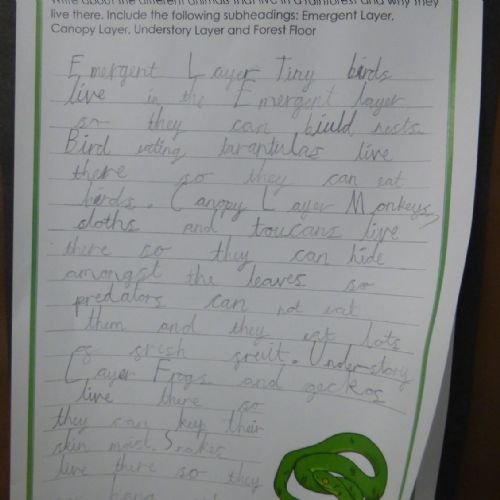 Write about the different animals that live in a rainforest and why they
live there. Include the following subheadings: Emergent Layer,
Canopy Layer, Understory Layer and Forest Floor
Emergent Layer Tiny birds
live in the Emergent layer
so they can biuld nests.
Bird eating tarantulas live
there so they can eat
birds. Canopy Layer Monkeys,
sloths and toucans live
there so they can hide
amongst the leaves so
predators can not eat
them and they eat lots
of fresh freuit. Understory
Layer Frogs and geckos
live there so
they can kep their
skin moist. Snakes
live there so they
can hang